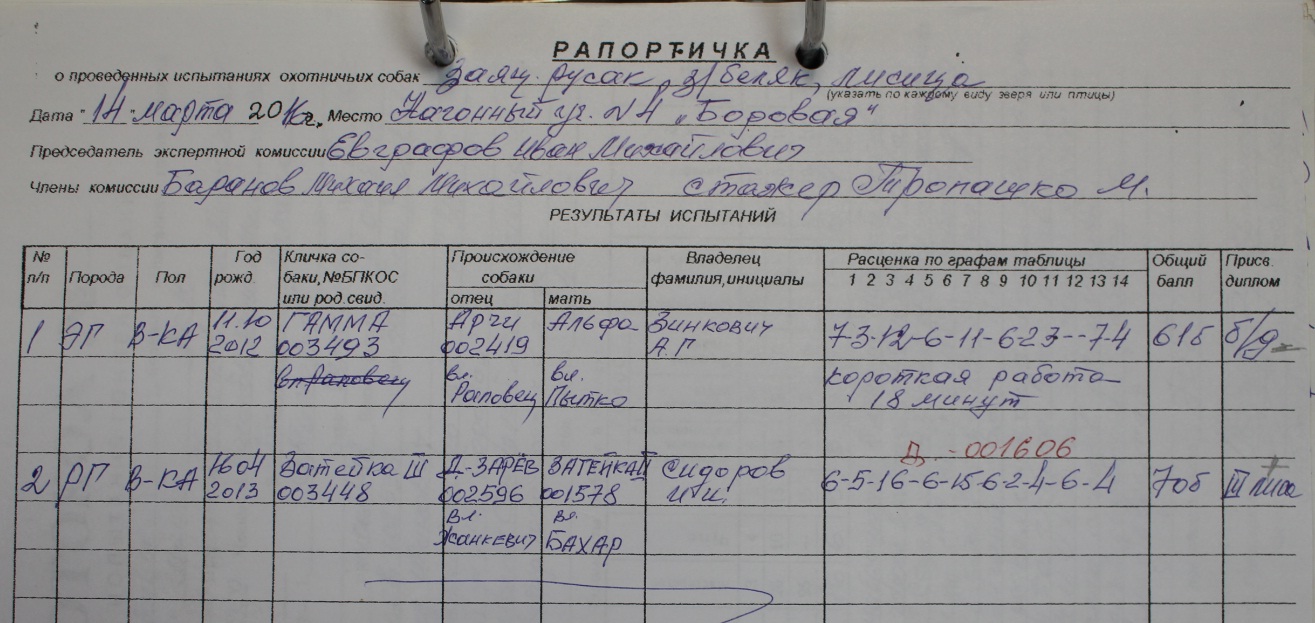 РАПОРТИЧКА
о проведенных испытаниях охотничьих собак Заяц-русак, з/беляк, лисица
(указать по каждому виду зверя или птицы)
Дата "14" марта 2016г. Место Нагонный уч. N4 „Боровая"
Председатель экспертной комиссии Евграфов Иван Михайлович
Члены комиссии Баранов Михаил Михайлович стажер Тропашко М.
РЕЗУЛЬТАТЫ ИСПЫТАНИЙ
№ Год Кличка со- Происхождение Владелец Расценка по графам таблицы Общий Присв.
п/п Порода Пол рожд. баки,№БПКОС собаки фамилия,инициалы 1 2 3 4 5 6 7 8 9 10 11 12 13 14 балл диплом
или род.свид. отец мать
1 ЭГ В-КА 11.10 ГАММА Арчи Альфа Зинкович 7-3-12-6-11-6-2-3--7-4 61б б/д
2012 003493 002419 А.Г
вл. вл. короткая работа
Раповец Пытко 18 минут
Д-001606
2 РГ В-КА 16.04 Затейка III Д.-ЗАРЁВ ЗАТЕЙКА II Сидоров 6-5-16-6-15-6-2-4-6-4 70б III лиса
2013 003448 002596 001578 И.И.
вл. вл.
Жанкевич БАХАР